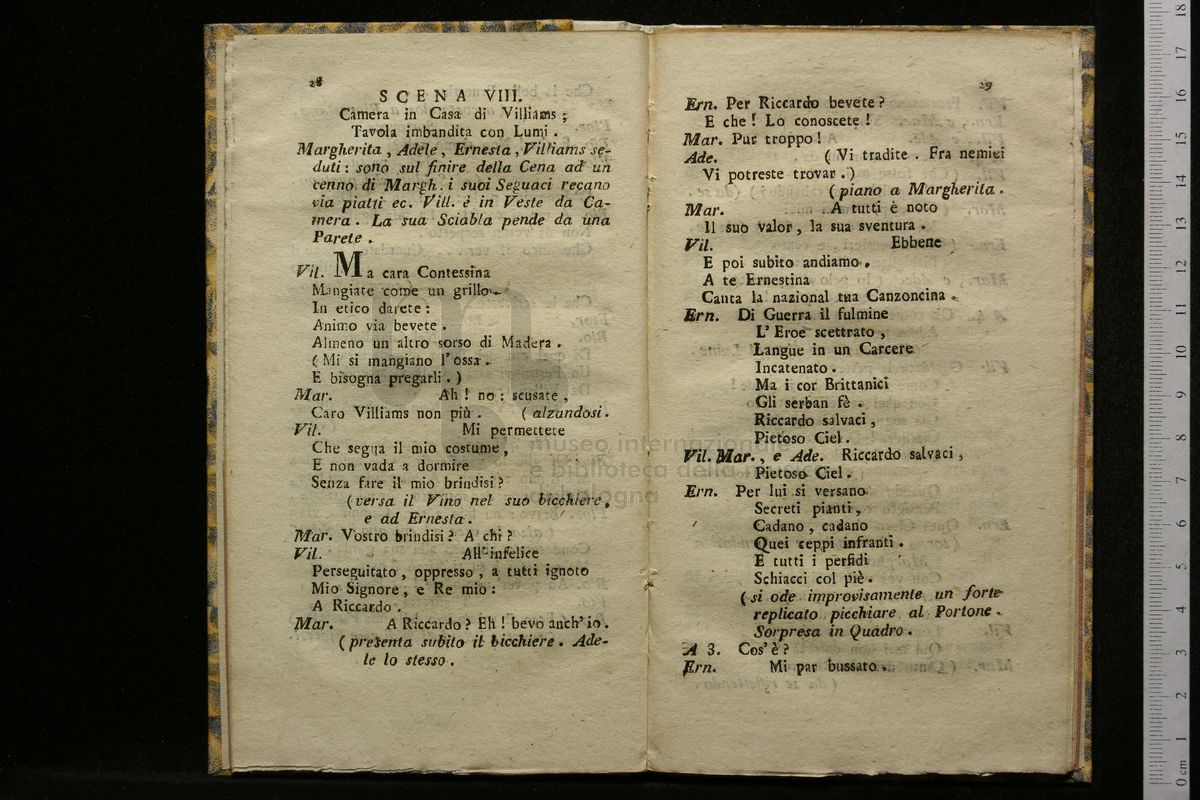 28
SCENA VIII.
Camera in Casa di Villiams ;
Tavola imbandita con Lumi .
Margherita , Adele , Ernesta , Villiams se-
duti : sono sul finire della Cena ad un
cenno di Margh. i suoi Seguaci recano
via piatti ec. Vill. è in Veste da Ca-
mera . La sua Sciabla pende da una
Parete .
Vil. Ma cara Contessina
Mangiate come un grillo
In etico darete :
Animo via bevete .
Almeno un altro sorso di Madera .
( Mi si mangiano l'ossa .
E bisogna pregarli . )
Mar. Ah ! no : scusate ,
Caro Villiams non più . ( alzandosi .
Vil. Mi permettete
Che segua il mio costume ,
E non vada a dormire
Senza fare il mio brindisi ?
( versa il Vino nel suo bicchiere ,
e ad Ernesta .
Mar. Vostro brindisi ? A chi ?
Vil. All' infelice
Perseguitato , oppresso , a tutti ignoto
Mio Signore , e Re mio :
A Riccardo .
Mar. A Riccardo ? Eh ! bevo anch' io .
( presenta subito il bicchiere . Ade-
le lo stesso .
29
Ern. Per Riccardo bevete ?
E che ! Lo conoscete !
Mar. Pur troppo !
Ade. ( Vi tradite . Fra nemici
Vi potreste trovar . )
( piano a Margherita .
Mar. A tutti è noto
Il suo valor , la sua sventura .
Vil. Ebbene
E poi subito andiamo .
A te Ernestina
Canta la nazional tua Canzoncina .
Ern. Di Guerra il fulmine
L' Eroe scettrato ,
Langue in un Carcere
Incatenato .
Ma i cor Brittanici
Gli serban fè .
Riccardo salvaci ,
Pietoso Ciel .
Vil. Mar. , e Ade. Riccardo salvaci ,
Pietoso Ciel .
Ern. Per lui si versano
Secreti pianti ,
Cadano , cadano
Quei ceppi infranti .
E tutti i perfidi
Schiacci col piè .
( si ode improvisamente un forte
replicato picchiare al Portone .
Sorpresa in Quadro .
A 3. Cos' è ?
Ern. Mi par bussato .
museo internazionale
e biblioteca della musica
di bologna
0 cm 1 2 3 4 5 6 7 8 9 10 11 12 13 14 15 16 17 18